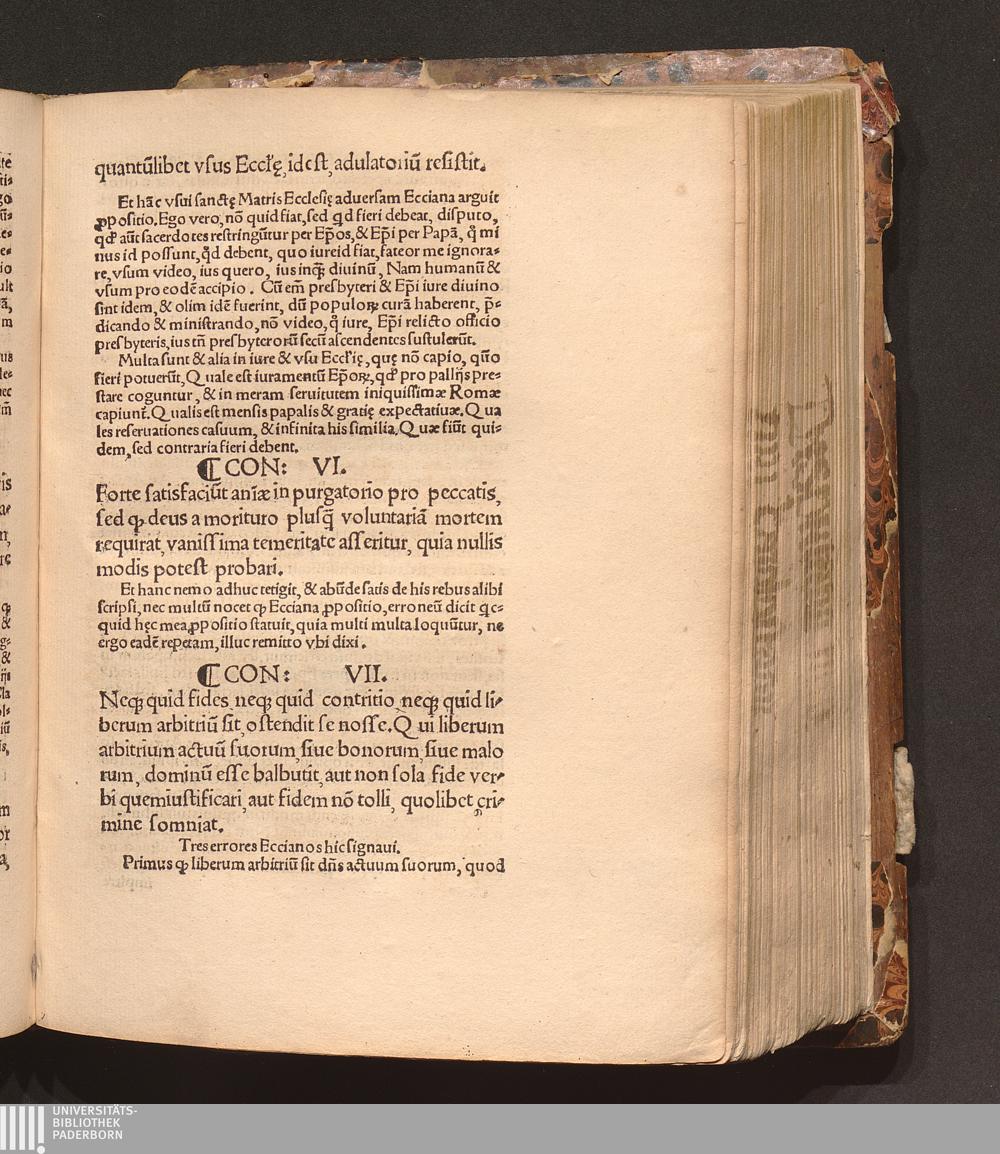 quantũlibet vsus Eccɫę, idest, adulatoriũ resistit.
Et hãc vsui sanctę Matris Ecclesię aduersam Ecciana arguit
ꝓpositio. Ego vero, nõ quid fiat, sed qd fieri debeat, disputo,
qđ aũt sacerdotes restringũtur per Ep̃os, & Ep̃i per Papã, q̊ mi
nus id possunt, q̊d debent, quo iure id fiat, fateor me ignora⸗
re, vsum video, ius quero, ius inq̃ȝ diuinũ, Nam humanũ &
vsum pro eodẽ accipio. Cũ em̃ presbyteri & Ep̃i iure diuino
sint idem, & olim idẽ fuerint, dũ populoꝝ curã haberent, p̃⸗
dicando & ministrando, nõ video, q̊ iure, Ep̃i relicto officio
presbyteris, ius tñ presbyterorũ secũ ascendentes sustulerũt.
Multa sunt & alia in iure & vsu Eccɫię, quę nõ capio, quõ
fieri potuerũt, Quale est iuramentũ Ep̃oꝝ, qđ pro pallijs pre⸗
stare coguntur, & in meram seruitutem iniquissimæ Romæ
capiunt̃. Qualis est mensis papalis & gratię expectatiuæ. Qua
les reseruationes casuum, & infinita his similia. Quæ fiũt qui⸗
dem, sed contraria fieri debent.
¶ CON: VI.
Forte satisfaciũt aniæ in purgatorio pro peccatis,
sed ꝙ deus a morituro plusq̃ voluntariã mortem
requirat, vanissima temeritate asseritur, quia nullis
modis potest probari.
Et hanc nemo adhuc tetigit, & abũde satis de his rebus alibi
scripsi, nec multũ nocet ꝙ Ecciana ꝓpositio, erroneũ dicit qc⸗
quid hęc mea ꝓpositio statuit, quia multi multa loquũtur, ne
ergo eadẽ repetam, illuc remitto vbi dixi.
¶ CON: VII.
Neqȝ quid fides neqȝ quid contritio neqȝ quid li⸗
berum arbitriũ sit, ostendit se nosse. Qui liberum
arbitrium actuũ suorum, siue bonorum, siue malo
rum, dominũ esse balbutit, aut non sola fide ver⸗
bi quemiustificari, aut fidem nõ tolli, quolibet cri⸗
mine somniat.
Tres errores Eccianos hic signaui.
Primus ꝙ liberum arbitriũ sit dñs actuum suorum, quod
UNIVERSITÄTS-
BIBLIOTHEK
PADERBORN